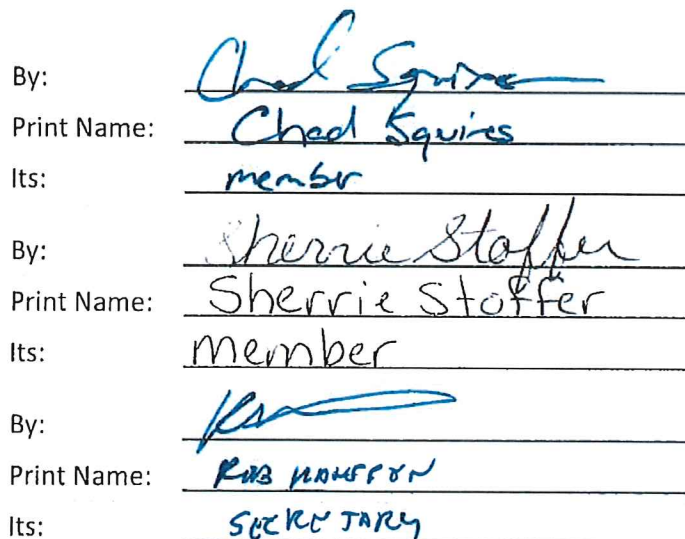 By: Chad Squires
Print Name: Chad Squires
Its: member
By: Sherrie Stoffer
Print Name: Sherrie Stoffer
Its: Member
By:
Print Name: ROB
Its: SECRETARY